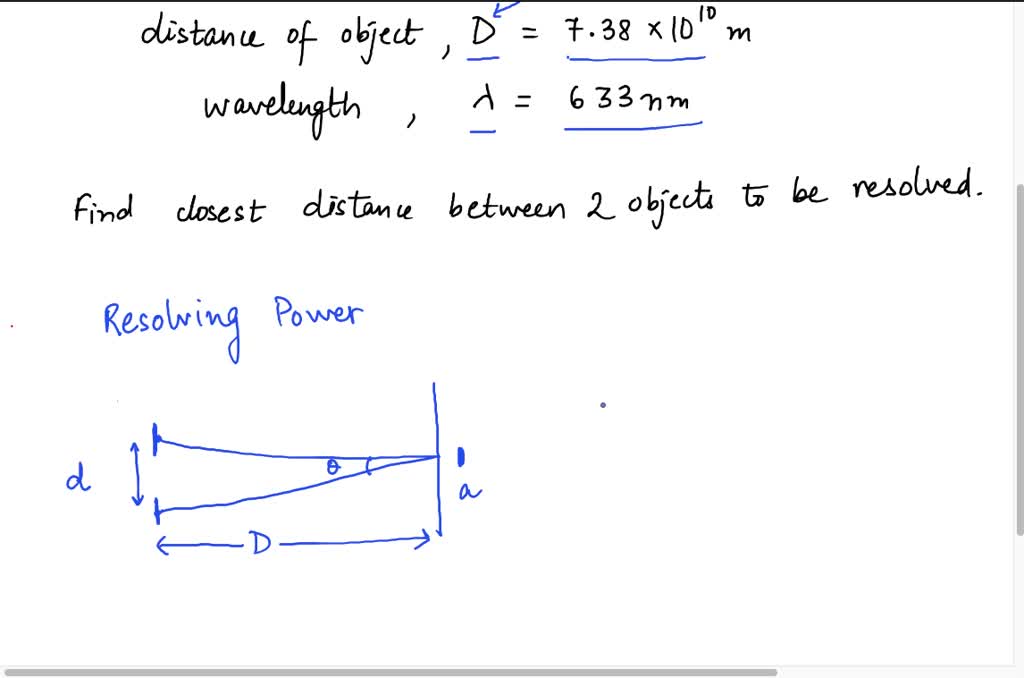 distance of object, D = 7.38 × 10¹⁰ m
wavelength, λ = 633nm
Find closest distance between 2 objects to be resolved.
Resolving Power
θ
d
a
D